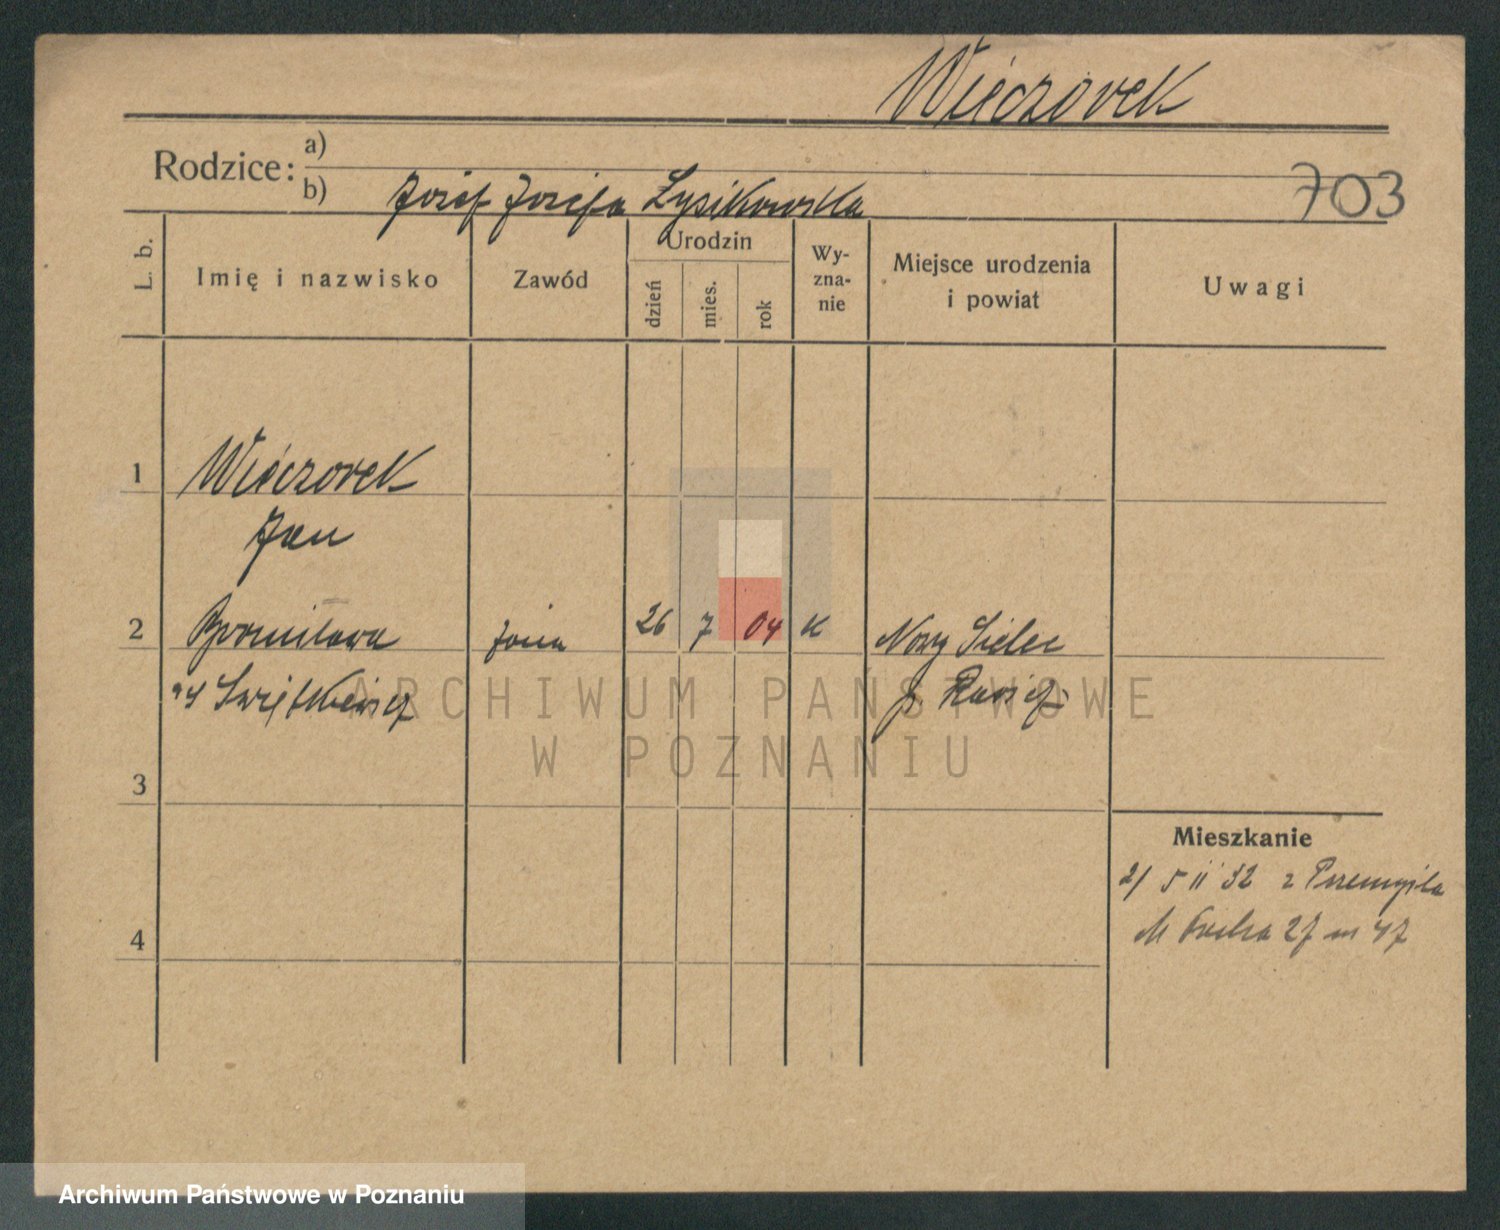 Wieczorek
Rodzice: a)
b) Józef Józefa Łysikowska
703
L. b.
Imię i nazwisko
Zawód
Urodzin
dzień
mies.
rok
Wy-
zna-
nie
Miejsce urodzenia
i powiat
Uwagi
1 Wieczorek
Jan
2 Bronisława żona 26 7 04 K Nowy Sielec
p.
ARCHIWUM PAŃSTWOWE
W POZNANIU
3
Mieszkanie
2/ 5 II 32 z Przemyśla
M Focha 27 m 47
4
Archiwum Państwowe w Poznaniu